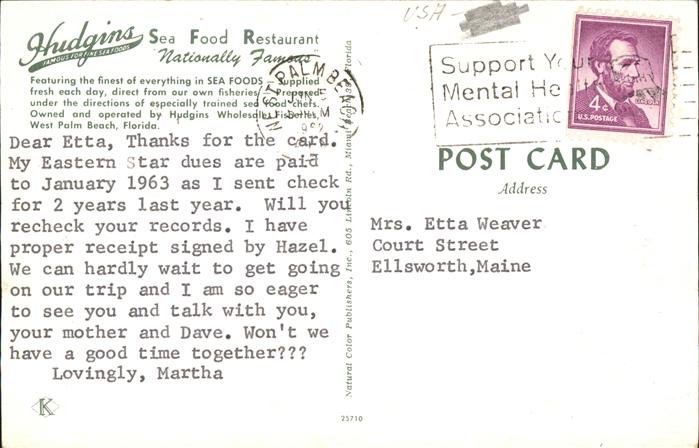 USA
Hudgins Sea Food Restaurant
FAMOUS FOR FINE SEA FOODS
"Nationally Famous"
Featuring the finest of everything in SEA FOODS — Supplied
fresh each day, direct from our own fisheries. Prepared
under the directions of especially trained sea food chefs.
Owned and operated by Hudgins Wholesale Fisheries,
West Palm Beach, Florida.
WEST PALM BEACH
Support Your
Mental Health
Association
LINCOLN
4¢
U.S. POSTAGE
POST CARD
Address
Dear Etta, Thanks for the card.
My Eastern Star dues are paid
to January 1963 as I sent check
for 2 years last year. Will you
recheck your records. I have
proper receipt signed by Hazel.
We can hardly wait to get going
on our trip and I am so eager
to see you and talk with you,
your mother and Dave. Won't we
have a good time together???
Lovingly, Martha
Natural Color Publishers, Inc., 605 Lincoln Rd., Miami Beach 39, Florida
Mrs. Etta Weaver
Court Street
Ellsworth,Maine
K
25710